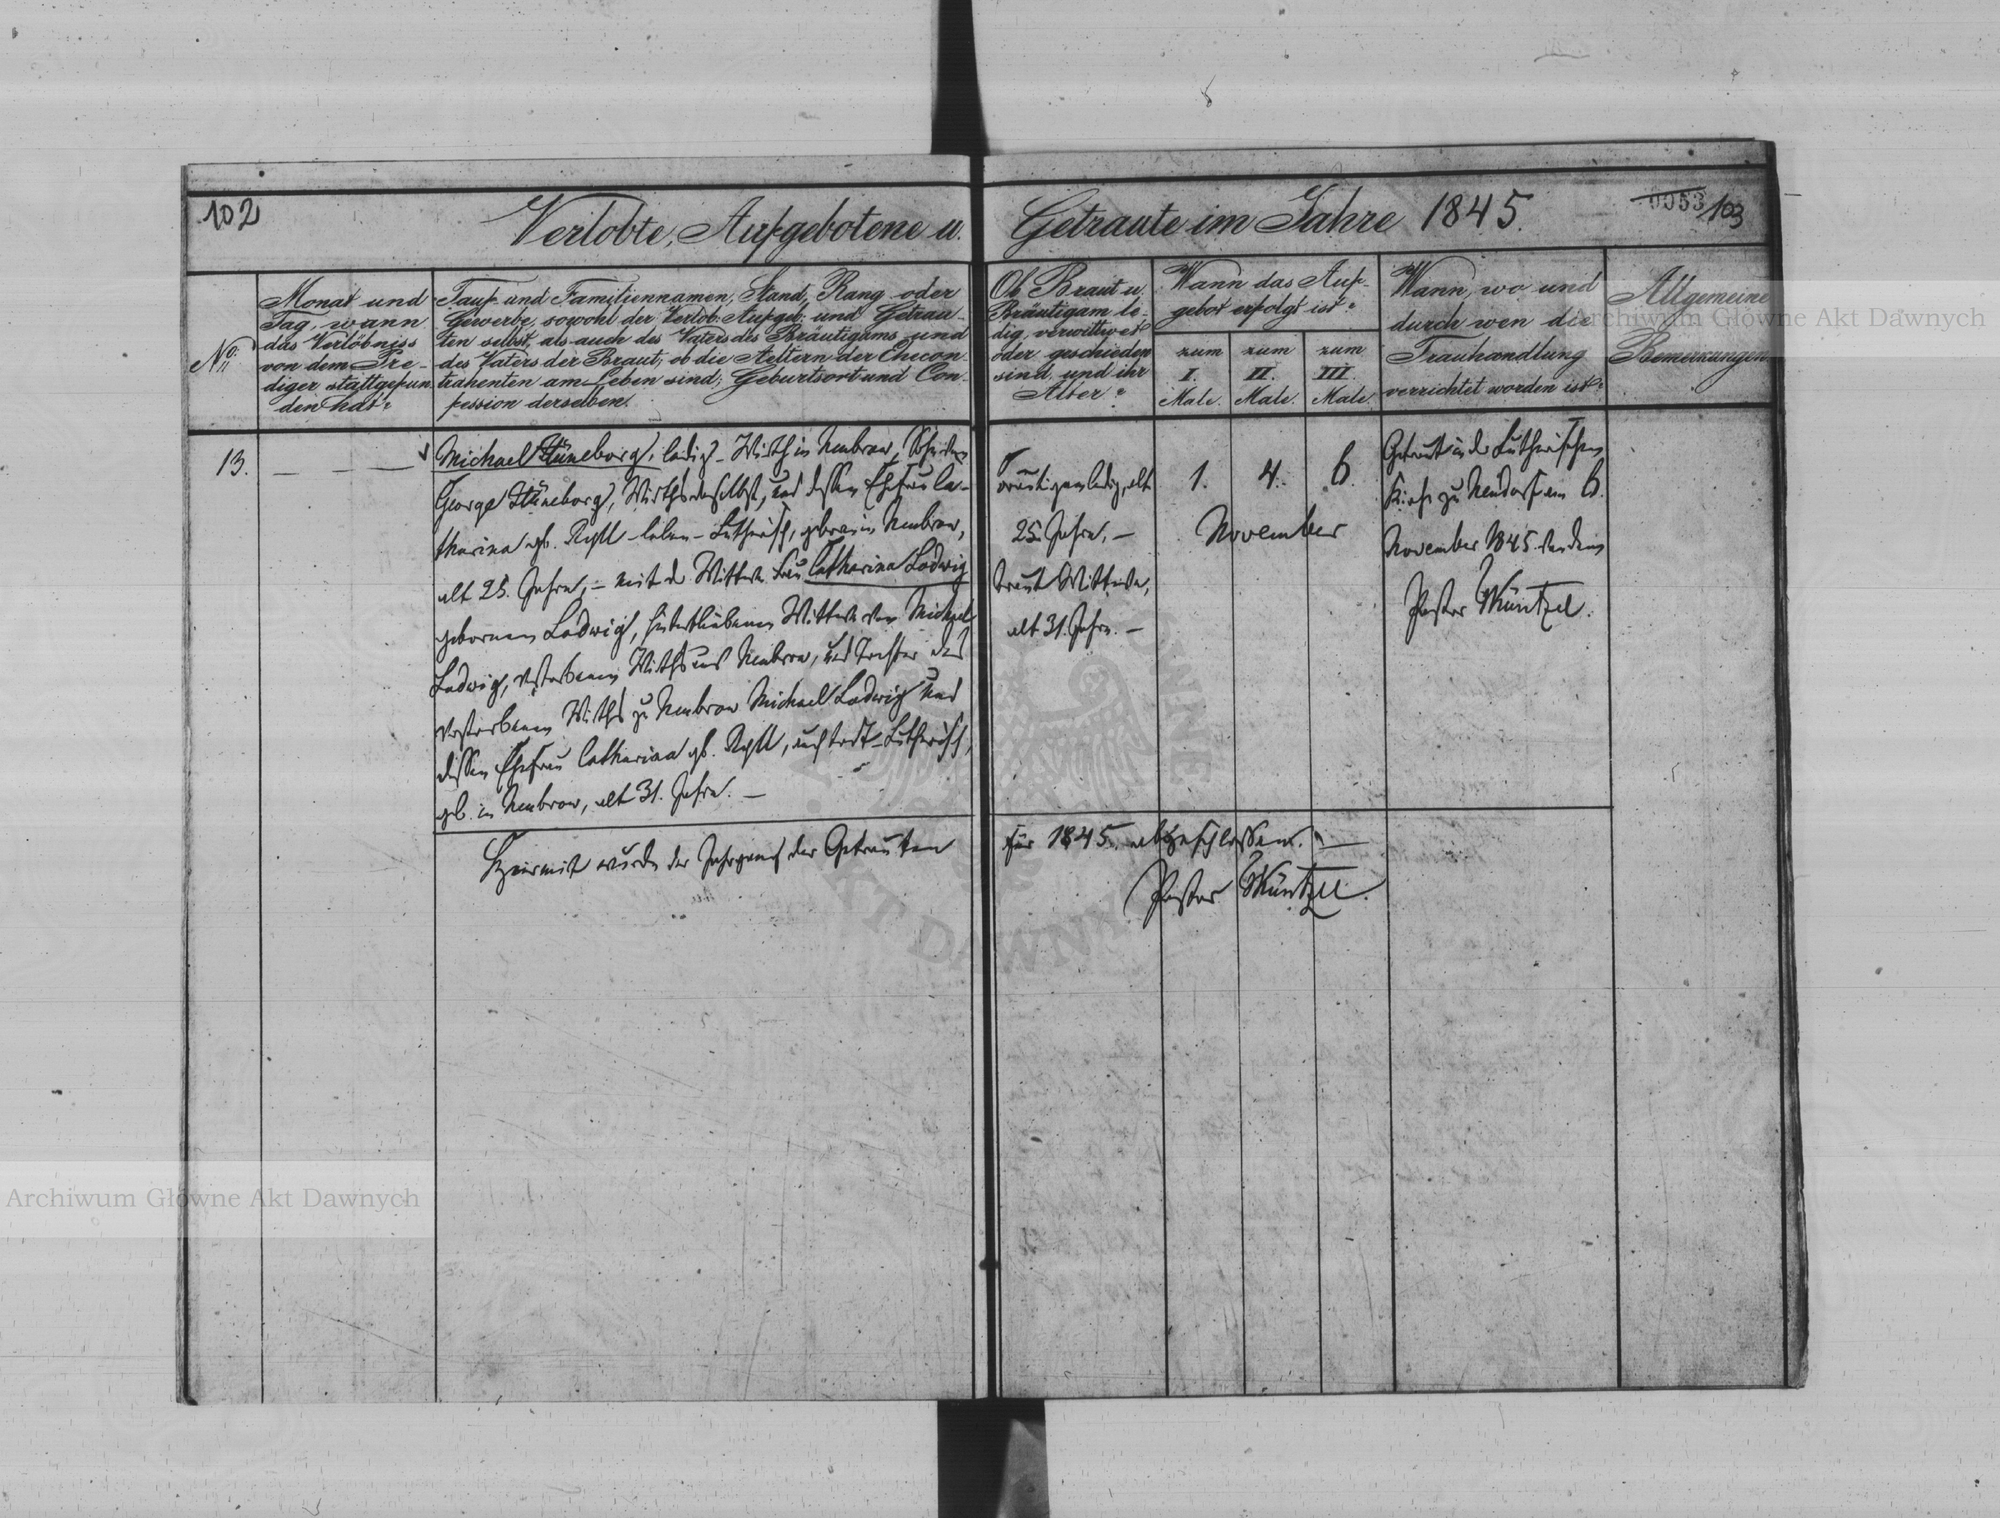 102
Verlobte, Aufgebotene u. Getraute im Jahre 1845.
0053 103
No.
Monat und
Tag, wann
das Verlöbniss
von dem Pre-
diger stattgefun
den hat?
Tauf- und Familiennamen, Stand, Rang oder
Gewerbe, sowohl der Verlob. Aufgeb. und Getrau-
ten selbst, als auch des Vaters des Bräutigams und
des Vaters der Braut; ob die Aeltern der Ehecon-
trahenten am Leben sind; Geburtsort und Con-
fession derselben.
Ob Braut u.
Bräutigam le-
dig, verwittwet
oder geschieden
sind, und ihr
Alter?
Wann das Auf-
gebot erfolgt ist?
zum
I.
Male.
zum
II.
Male.
zum
III.
Male.
Wann, wo und
durch wen die
Trauhandlung
verrichtet worden ist?
Allgemeine
Bemerkungen.
13.
Michael Hüneborg, ledig, Wirth in Neubrow, Sohn des
George Hüneborg, Wirths daselbst, und dessen Ehefrau Ca-
tharina gb. – leben – Lutherisch, geboren in Neubrow,
alt 25. Jahre, – mit der Wittwe Frau Catharina Ludwig
gebornen Ludwig, hinterbliebenen Wittwe von Michael
Ludwig, verstorbenen Wirths aus Neubrow, und Tochter des
verstorbenen Wirths zu Neubrow Michael Ludwig und
dessen Ehefrau Catharina gb. , auch todt – Lutherisch,
gb. in Neubrow, alt 31. Jahre. –
Bräutigam ledig, alt
25. Jahre. –
Braut Wittwe,
alt 31. Jahre. –
1. 4. 6.
November
Getraut in der Lutherischen
Kirche zu Neudorf am 6.
November 1845. von dem
Pastor Müntzel.
Hiermit wurde der Jahrgang der Getrauten
für 1845. abgeschlossen. –
Pastor Müntzel.
Archiwum Główne Akt Dawnych
Archiwum Główne Akt Dawnych
AKT DAWNYCH